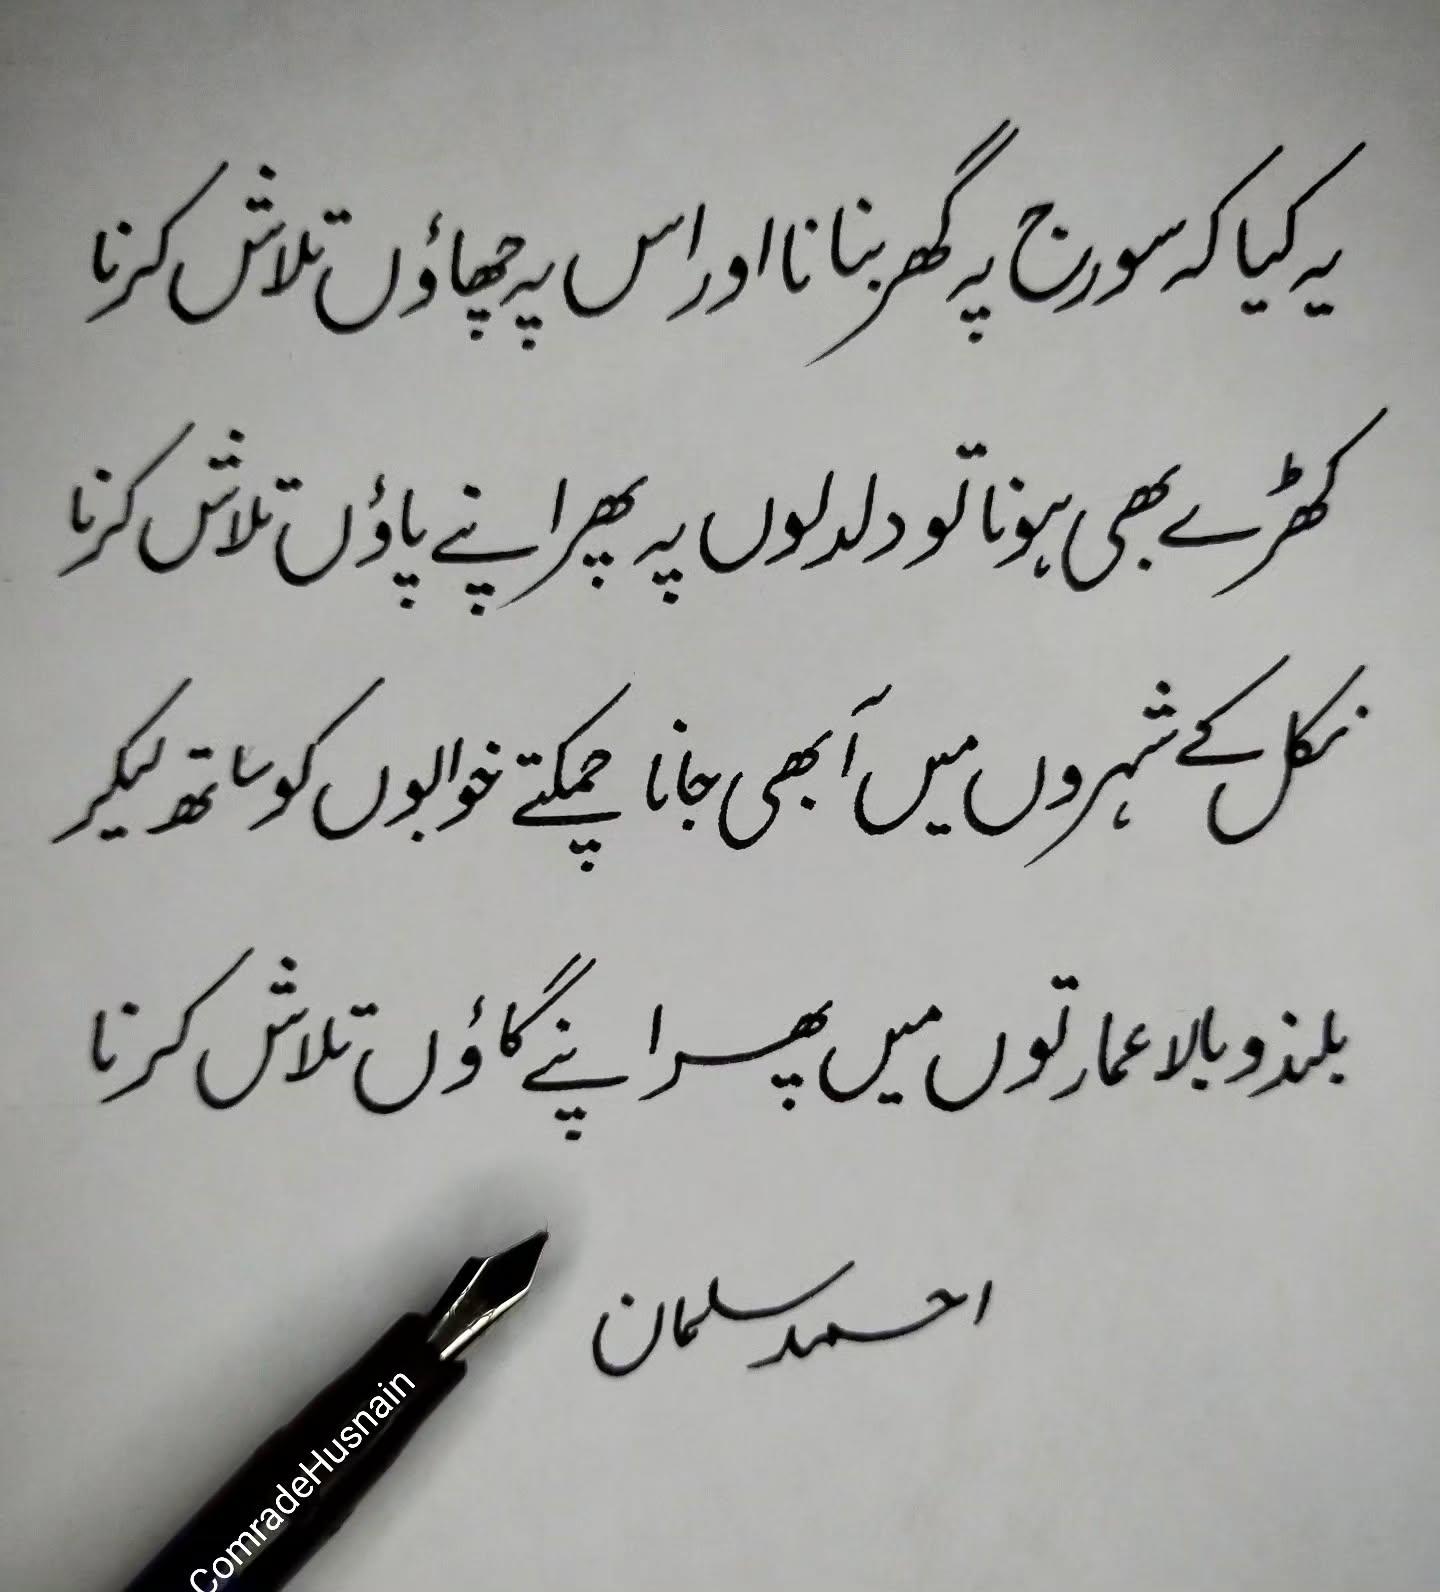 یہ کیا کہ سورج پہ گھر بنانا اور اس پہ چھاؤں تلاش کرنا
کھڑے بھی ہونا تو دلدلوں پہ پھر اپنے پاؤں تلاش کرنا
نکل کے شہروں میں آ بھی جانا چمکتے خوابوں کو ساتھ لیکر
بلند و بالا عمارتوں میں پھر اپنے گاؤں تلاش کرنا
احمد سلمان
ComradeHusnain